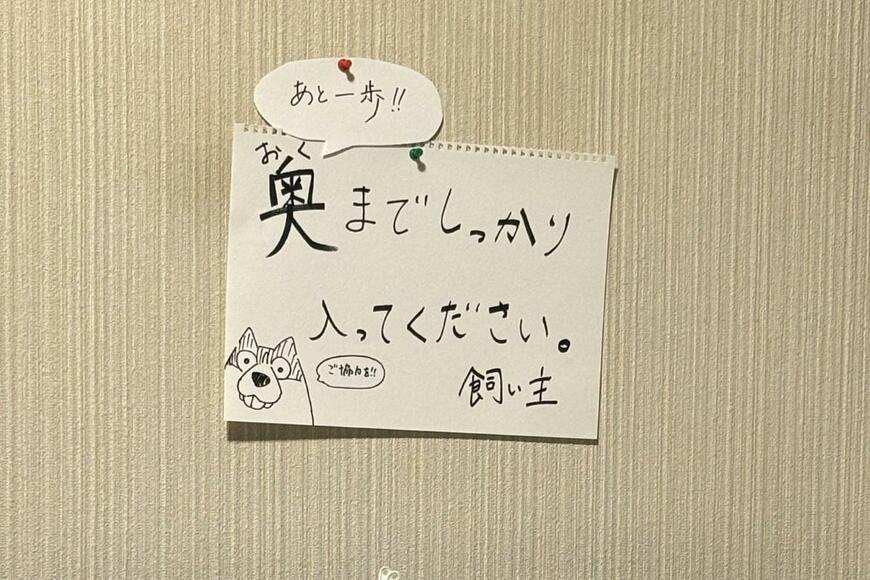 あと一歩!!
おく
奥までしっかり
入ってください。
ご協力を!!
飼い主